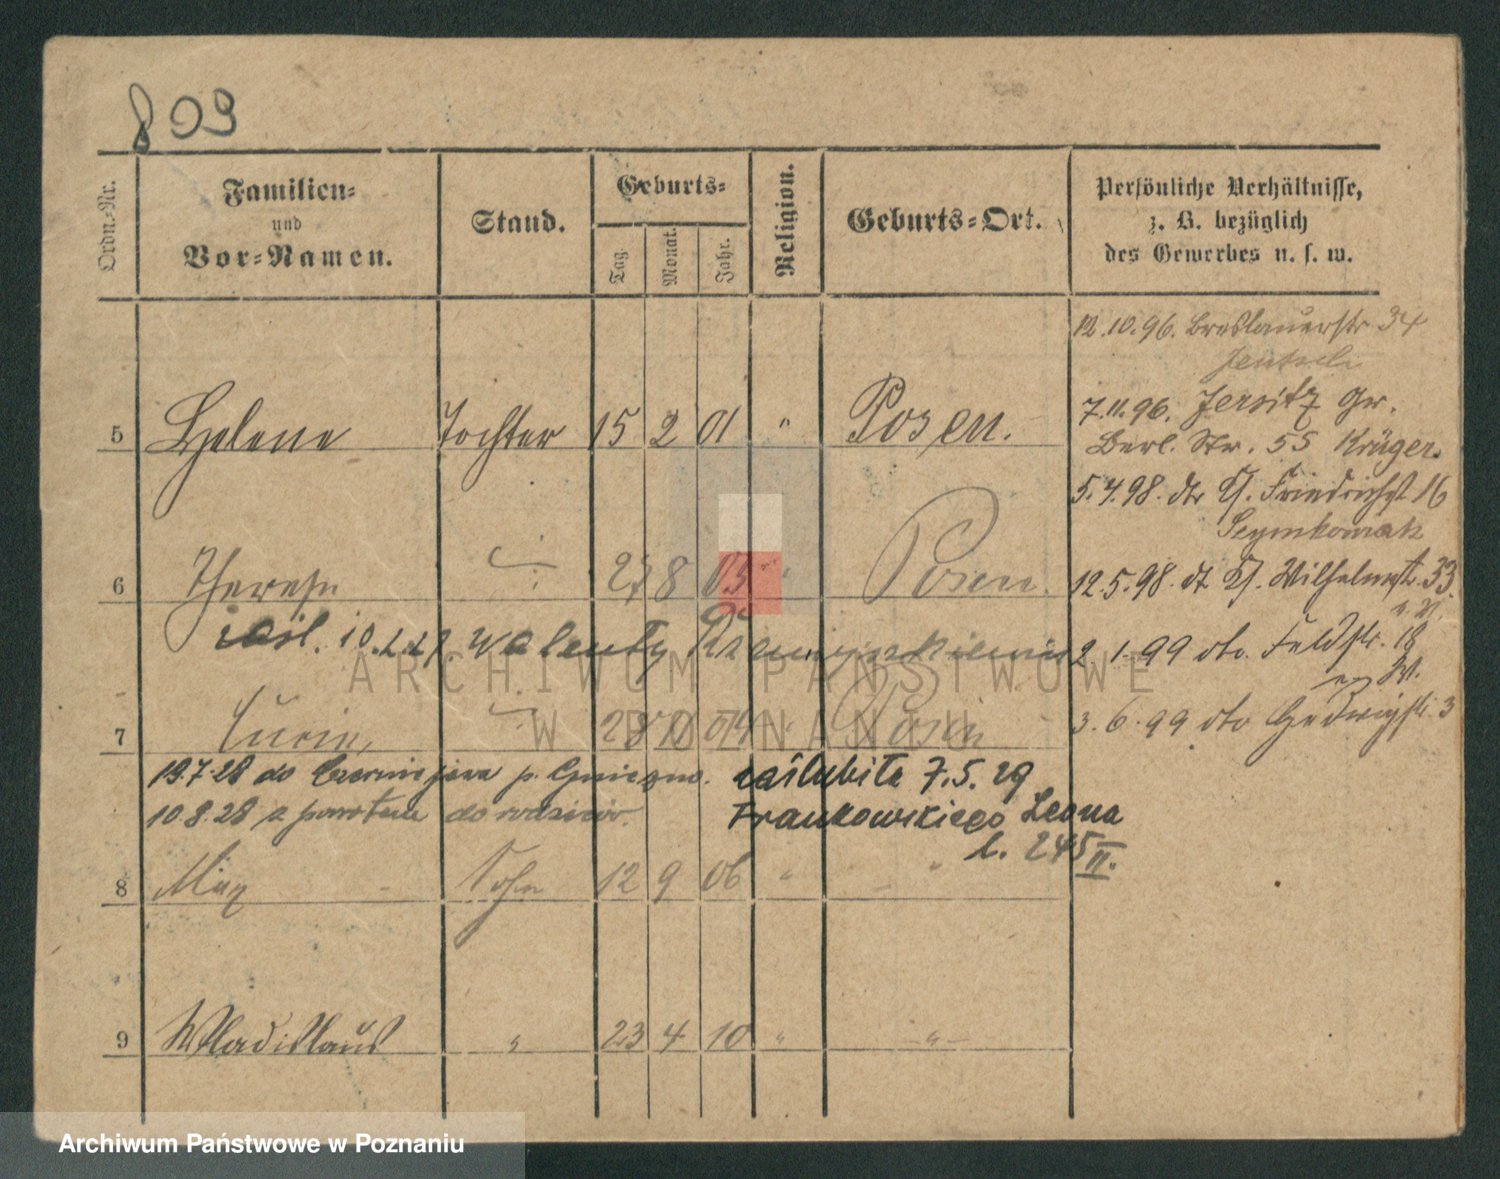 809
Ordn.-Nr.
Familien-
und
Vor-Namen.
Stand.
Geburts-
Tag.
Monat.
Jahr.
Religion.
Geburts-Ort.
Persönliche Verhältnisse,
z. B. bezüglich
des Gewerbes u. s. w.
12.10.96. Breslauerstr 34
Jentsch
7.11.96. Jersitz Gr.
Berl. Str. 55 Krüger.
5 Helene Tochter 15 2 01 " Posen.
5.4.98. dto Friedrichst 16
Szymkowiak
6 Therese 27 8 03 " Posen.
12.5.98. Wilhelmstr. 33
zaśl. 10.2.27. Walenty
2.1.99 dto. Feldstr. 18
7 Lucie, 28 11 04 " Posen
3.6.99 dto Hedwigstr. 3
19.7.28 do Czerniejewa p. Gniezno. zaślubiła 7.5.29
10.8.28 z powrotem do rodziców. Frankowskiego Leona
l. 245 II.
8 Max Sohn 12 9 06 " "
9 Wladislaus " 23 4 10 " "
ARCHIWUM PAŃSTWOWE
W POZNANIU
Archiwum Państwowe w Poznaniu